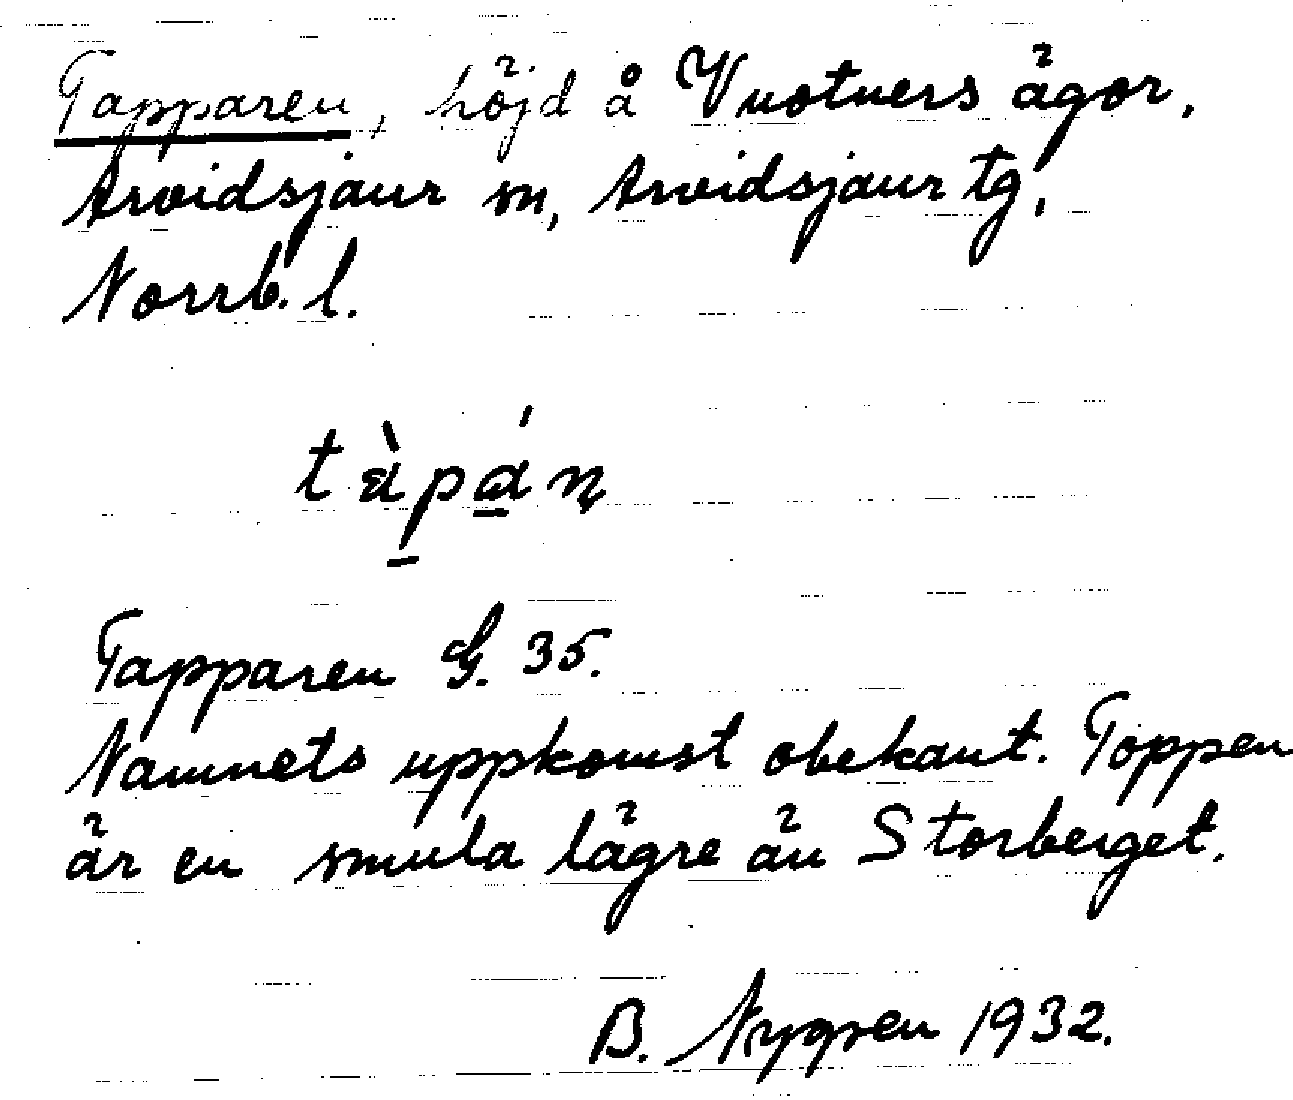 Tapparen, höjd å Vuotners ägor,
Arvidsjaur sn, Arvidsjaur tg,
Norrb. l.
tàpán
Tapparen G. 35.
Namnets uppkomst obekant. Toppen
är en smula lägre än Storberget.
B. Nygren 1932.